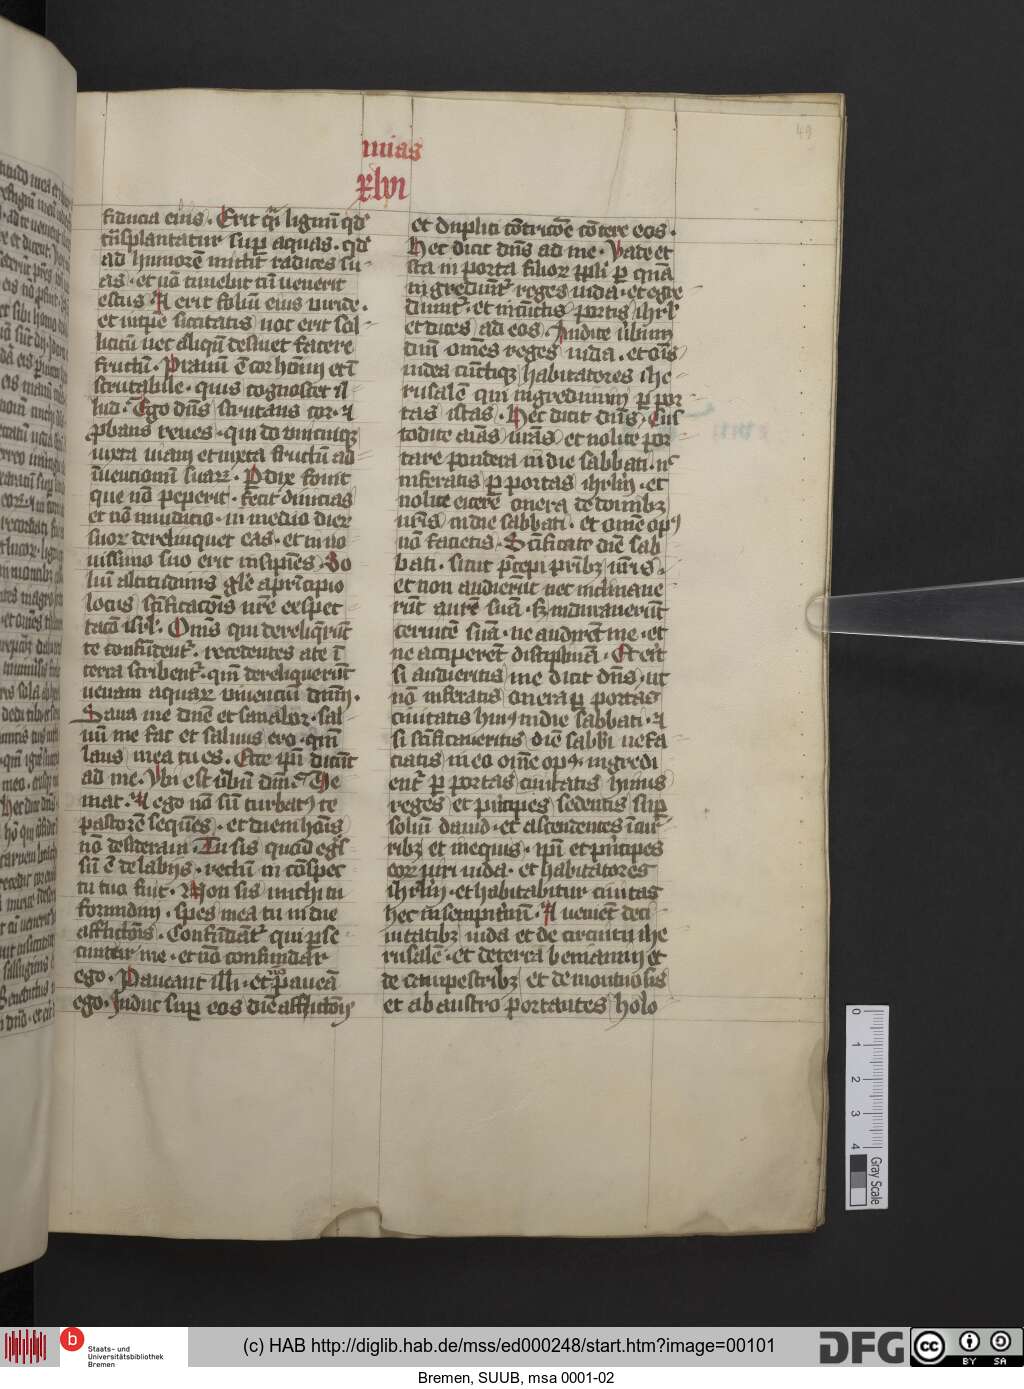 49
mias
xlvi
fiducia eius. Erit q̄i lignū qd'
tn̄splantatur sup aquas. qd'
ad humorē mittit radices su-
as. et nō timebit cū uenerit
estus. Et erit foliū eius viride.
et in tp̄e siccitatis noc erit sol-
licitū nec aliqn̄ desinet facere
fructū. Prauū ē cor hoīm et ī
scrutabile. quis cognoscet il
lud. Ego dn̄s scrutans cor. et
probans renes. qui do unicuiq;
iuxta uiam et iuxta fructū ad
inuentionū suarꝝ. Perdix fouit
que nō peperit. fecit diuicias
et nō in iudicio. in medio dierꝝ
suorꝝ derelinquet eas. et in no
uissimo suo erit insipiēs. So
liū altitudinis glē a principio
locus scīficacōis nr̄e expec
tacō isrl'. Om̄s qui te derelīqūt
te confundent'. recedentes a te ī
terra scribent'. qm̄ dereliquerūt
uenam aquarꝝ viuenciū dnm̄.
Sana me dn̄e et sanabor. sal
uū me fac et saluus ero. qm̄
laus mea tu es. Ecce ip̄i dicūt
ad me. Vbi est ūbū dn̄i. Ve
niat. Et ego nō sū turbat9 te
pastorē sequēs. et diem hoīs
nō desideraui. Tu scis quod egs̄
sū ē de labijs. rectū in cōspec
tu tuo fuit. Non sis michi tu
formidini. spes mea tu in die
afflictōis. Confūdāt' qui pse
cuntur me. et nō confundar
ego. Paueant illi. et nō paueā
ego. Induc sup eos diē afflictōis
et duplici cōtricōe cōtere eos.
Hec dicit dn̄s ad me. Vade et
sta in porta filiorꝝ ppli p quā
ingrediunt' reges iuda. et egre
diunt'. et in cūctis portis ihrl'
et dices ad eos. Audite ūbum
dn̄i om̄es reges iuda. et oīs
iudea cūctiq; habitatores ihe
rusalē qui ingredimini p por
tas istas. Hec dicit dn̄s. Cus
todite aīas ur̄as et nolite por
tare pondera in die sabbati. nec
inferatis p portas ihrlm. et
nolite eicere onera de domibꝫ
ur̄is in die sabbati. et om̄e op9
nō facietis. Scīficate diē sab
bati. sicut p̄cepi pr̄ibꝫ ur̄is.
et non audierūt nec inclinaue
rūt aurē suā. sꝫ indurauerūt
ceruicē suā. ne audirēt me. et
ne acciperēt disciplinā. Et erit
si audieritis me dicit dn̄s. ut
nō inferatis onera p portas
ciuitatis hui9 in die sabbati. et
si scīficaueritis diē sabbi ne fa
ciatis in eo om̄e op9. ingredi
ent' p portas ciuitatis huius
reges et pricipes sedentes sup
soliū dauid. et ascendentes ī cur
ribꝫ et in equis. ip̄i et principes
eorꝝ uiri iuda. et habitatores
ihrlm. et habitabitur ciuitas
hec in sempit'nū. Et uenīet de ci
uitatibꝫ iuda et de circuitu ihe
rusalē. et de terra beniamin et
de campestribꝫ et de montuosis
et ab austro portantes holo
0 1 2 3 4
Gray Scale
B
Staats- und
Universitätsbibliothek
Bremen
(c) HAB http://diglib.hab.de/mss/ed000248/start.htm?image=00101
DFG
cc BY SA
Bremen, SUUB, msa 0001-02